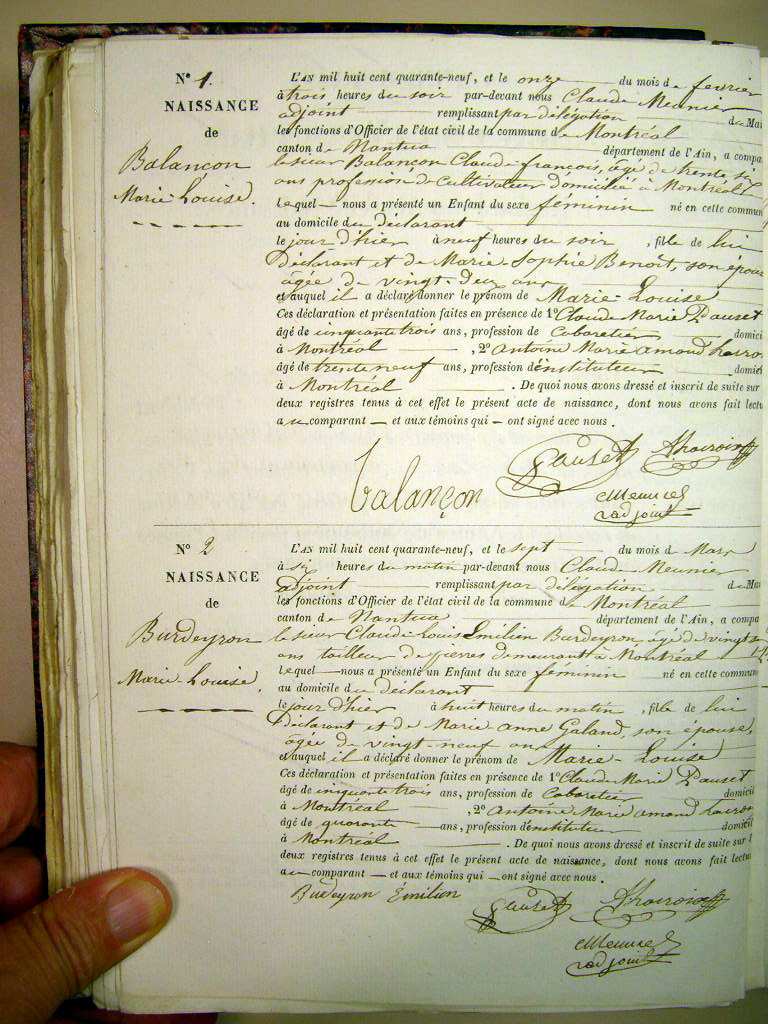 N° 1.
NAISSANCE
de
Balançon
Marie Louise.
L'AN mil huit cent quarante-neuf, et le onze du mois de février
à trois heures du soir par-devant nous Claude Meunier
adjoint remplissant par délégation du Mai
les fonctions d'Officier de l'état civil de la commune de Montréal
canton de Nantua département de l'Ain, a compa
le sieur Balançon Claude françois, âgé de trente six
ans profession de cultivateur domicilié à Montréal
Lequel — nous a présenté un Enfant du sexe féminin né en cette commun
au domicile du déclarant
le jour d'hier à neuf heures du soir , fille de lui
déclarant et de Marie Sophie Benoît, son épouse
âgée de vingt-deux ans
et auquel il a déclaré donner le prénom de Marie-Louise
Ces déclaration et présentation faites en présence de 1° Claude Marie Pauset
âgé de cinquante trois ans, profession de Cabaretier domici
à Montréal , 2° Antoine Marie amand
âgé de trente neuf ans, profession d'instituteur domici
à Montréal . De quoi nous avons dressé et inscrit de suite sur
deux registres tenus à cet effet le présent acte de naissance, dont nous avons fait lectu
au comparant — et aux témoins qui — ont signé avec nous .
Balançon
Pauset
Meunier
adjoint
N° 2
NAISSANCE
de
Burdeyron
Marie Louise.
L'AN mil huit cent quarante-neuf, et le sept du mois de Mars
à six heures du matin par-devant nous Claude Meunier
adjoint remplissant par délégation du Mai
les fonctions d'Officier de l'état civil de la commune de Montréal
canton de Nantua département de l'Ain, a compa
le sieur Claude Louis Emilien Burdeyron âgé de vingt
ans tailleur de pierres demeurant à Montréal
Lequel — nous a présenté un Enfant du sexe féminin né en cette commun
au domicile du déclarant
le jour d'hier à huit heures du matin , fille de lui
déclarant et de Marie anne Galand, son épouse,
âgée de vingt-neuf ans
et auquel il a déclaré donner le prénom de Marie-Louise
Ces déclaration et présentation faites en présence de 1° Claude Marie Pauset
âgé de cinquante trois ans, profession de Cabaretier domicil
à Montréal , 2° Antoine Marie amand
âgé de quarante ans, profession d'instituteur domicil
à Montréal . De quoi nous avons dressé et inscrit de suite sur
deux registres tenus à cet effet le présent acte de naissance, dont nous avons fait lectu
au comparant — et aux témoins qui — ont signé avec nous .
Burdeyron Emilien
Pauset
Meunier
adjoint